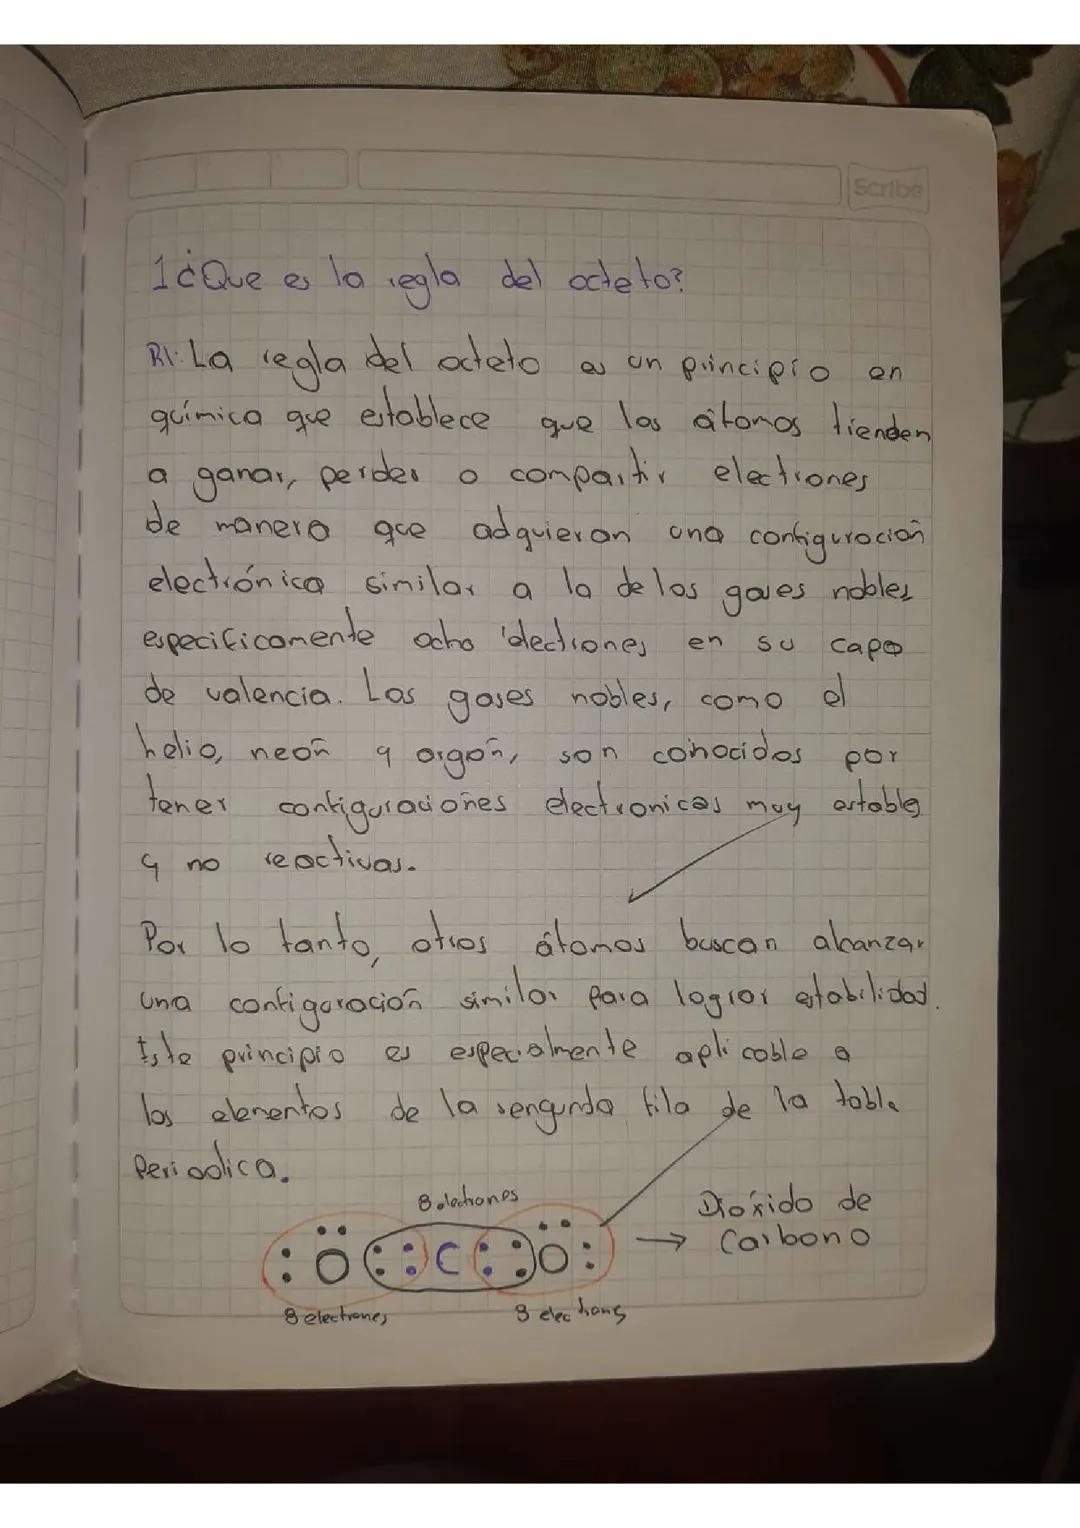 Scribe
1¿Que es la regla del octeto?
R1: La regla del octeto es un principio en
química que establece que los átomos tienden
a ganar, perder o compartir electrones
de manera que adquieran una configuración
electrónica similar a la de los gases nobles
especificamente ocho electrones en su capa
de valencia. Los gases nobles, como el
helio, neón y argón, son conocidos por
tener configuraciones electronicas muy estables
y no reactivas.
Por lo tanto, otros átomos buscan alcanzar
una configuración similar para lograr estabilidad.
Este principio es especialmente aplicable a
los elementos de la sengunda fila de la tabla
Periodica.
8 electrones
Dióxido de
O C O → Carbono
8 electrones 8 electrons